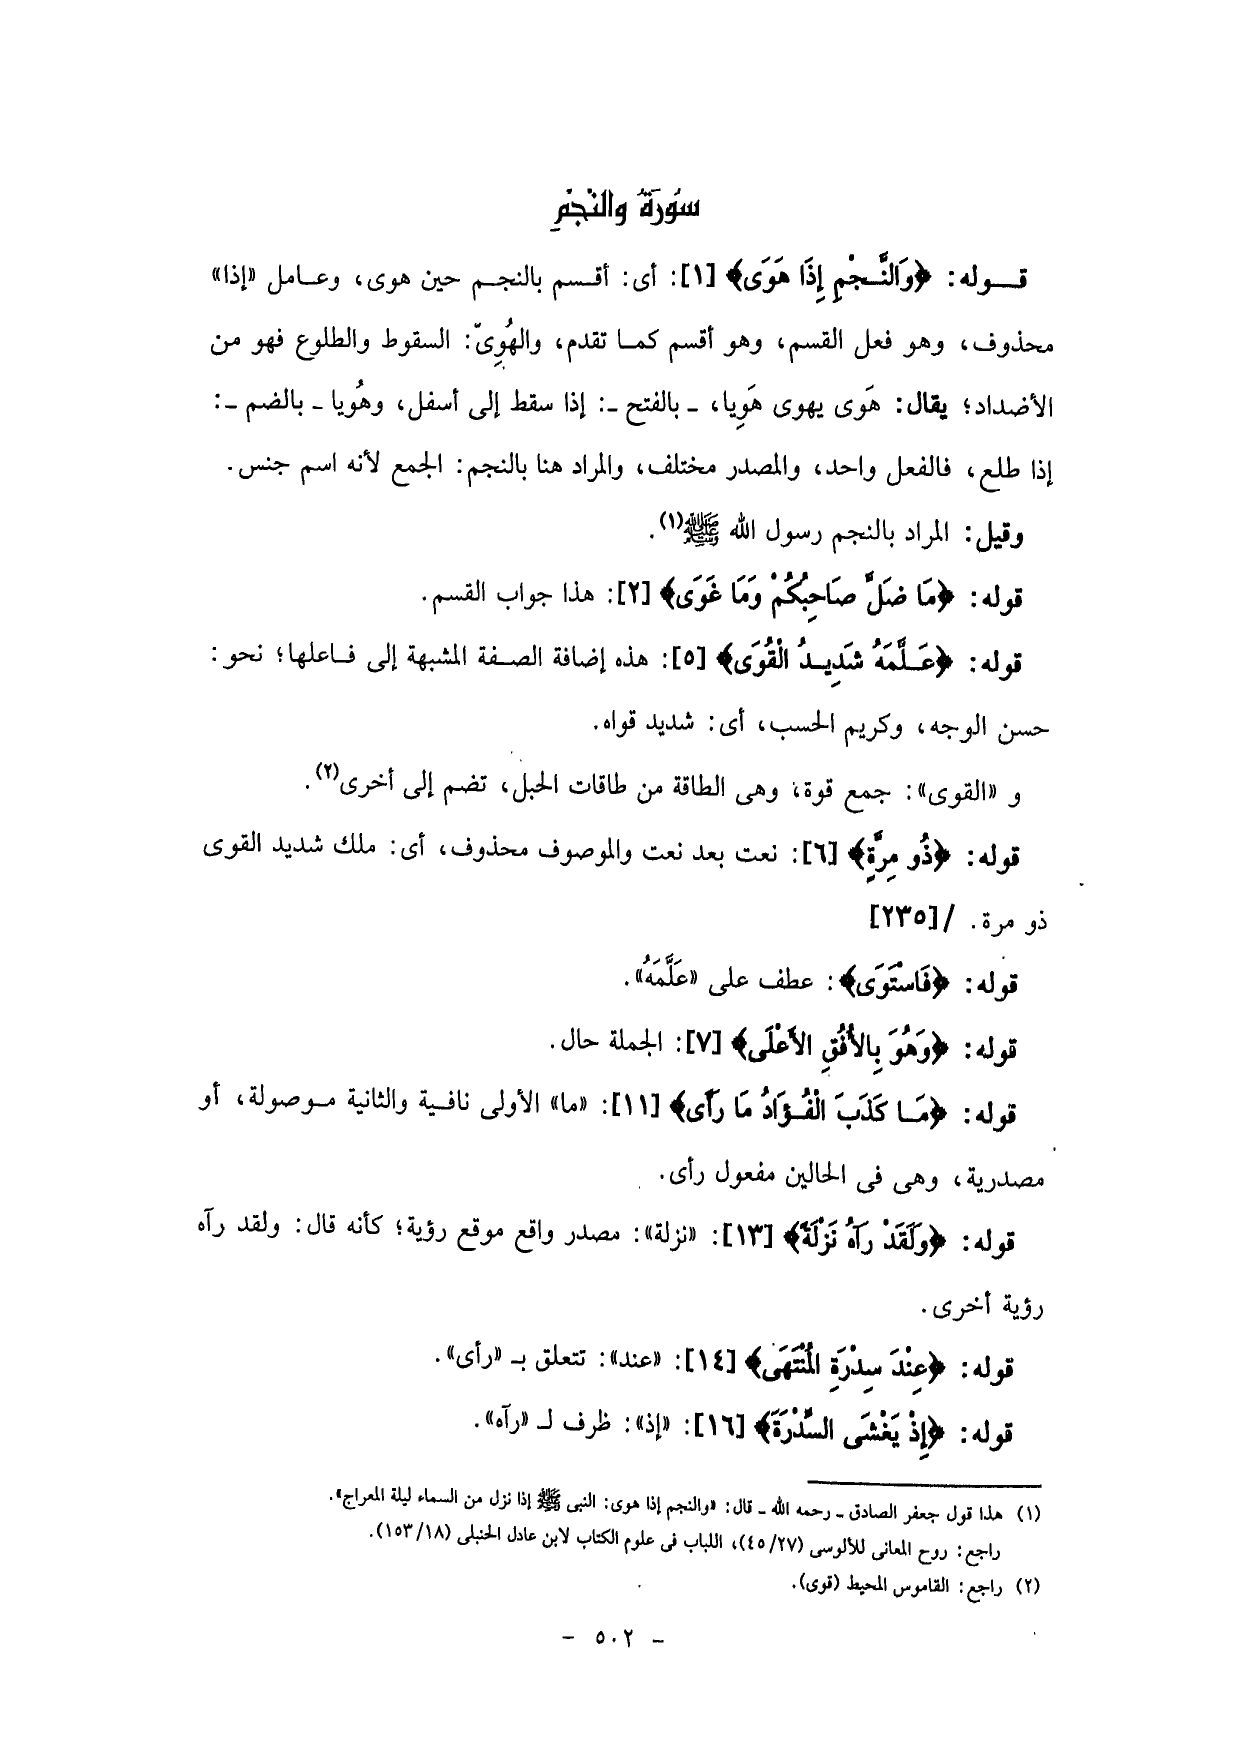 سُورَةُ والنَّجْمِ
قـــوله: ﴿وَالنَّـجْمِ إِذَا هَوَى﴾ [١]: أى: أقـسم بالنجـم حين هوى، وعـامل «إذا»
محذوف، وهو فعل القسم، وهو أقسم كمـا تقدم، والهُوِىّ: السقوط والطلوع فهو من
الأضداد؛ يقال: هَوى يهوى هَوِيا، ـ بالفتح ـ: إذا سقط إلى أسفل، وهُويا ـ بالضم ـ:
إذا طلع، فالفعل واحد، والمصدر مختلف، والمراد هنا بالنجم: الجمع لأنه اسم جنس.
وقيل: المراد بالنجم رسول الله ﷺ(١).
قوله: ﴿مَا ضَلَّ صَاحِبُكُمْ وَمَا غَوَى﴾ [٢]: هذا جواب القسم.
قوله: ﴿عَـلَّمَهُ شَدِيـدُ الْقُوَى﴾ [٥]: هذه إضافة الصـفة المشبهة إلى فـاعلها؛ نحو:
حسن الوجه، وكريم الحسب، أى: شديد قواه.
و «القوى»: جمع قوة، وهى الطاقة من طاقات الحبل، تضم إلى أخرى(٢).
قوله: ﴿ذُو مِرَّةٍ﴾ [٦]: نعت بعد نعت والموصوف محذوف، أى: ملك شديد القوى
ذو مرة. /[٢٣٥]
قوله: ﴿فَاسْتَوَى﴾: عطف على «عَلَّمَهُ».
قوله: ﴿وَهُوَ بِالأُفُقِ الأَعْلَى﴾ [٧]: الجملة حال.
قوله: ﴿مَـا كَذَبَ الْفُـؤَادُ مَا رَأَى﴾ [١١]: «ما» الأولى نافـية والثانية مـوصولة، أو
مصدرية، وهى فى الحالين مفعول رأى.
قوله: ﴿وَلَقَدْ رَآهُ نَزْلَةً﴾ [١٣]: «نزلة»: مصدر واقع موقع رؤية؛ كأنه قال: ولقد رآه
رؤية أخرى.
قوله: ﴿عِنْدَ سِدْرَةِ الْمُنْتَهَى﴾ [١٤]: «عند»: تتعلق بـ «رأى».
قوله: ﴿إِذْ يَغْشَى السِّدْرَةَ﴾ [١٦]: «إذ»: ظرف لـ «رآه».
(١) هذا قول جعفر الصادق ـ رحمه الله ـ قال: «والنجم إذا هوى: النبى ﷺ إذا نزل من السماء ليلة المعراج».
راجع: روح المعانى للألوسى (٢٧/ ٤٥)، اللباب فى علوم الكتاب لابن عادل الحنبلى (١٨/ ١٥٣).
(٢) راجع: القاموس المحيط (قوى).
- ٥٠٢ -